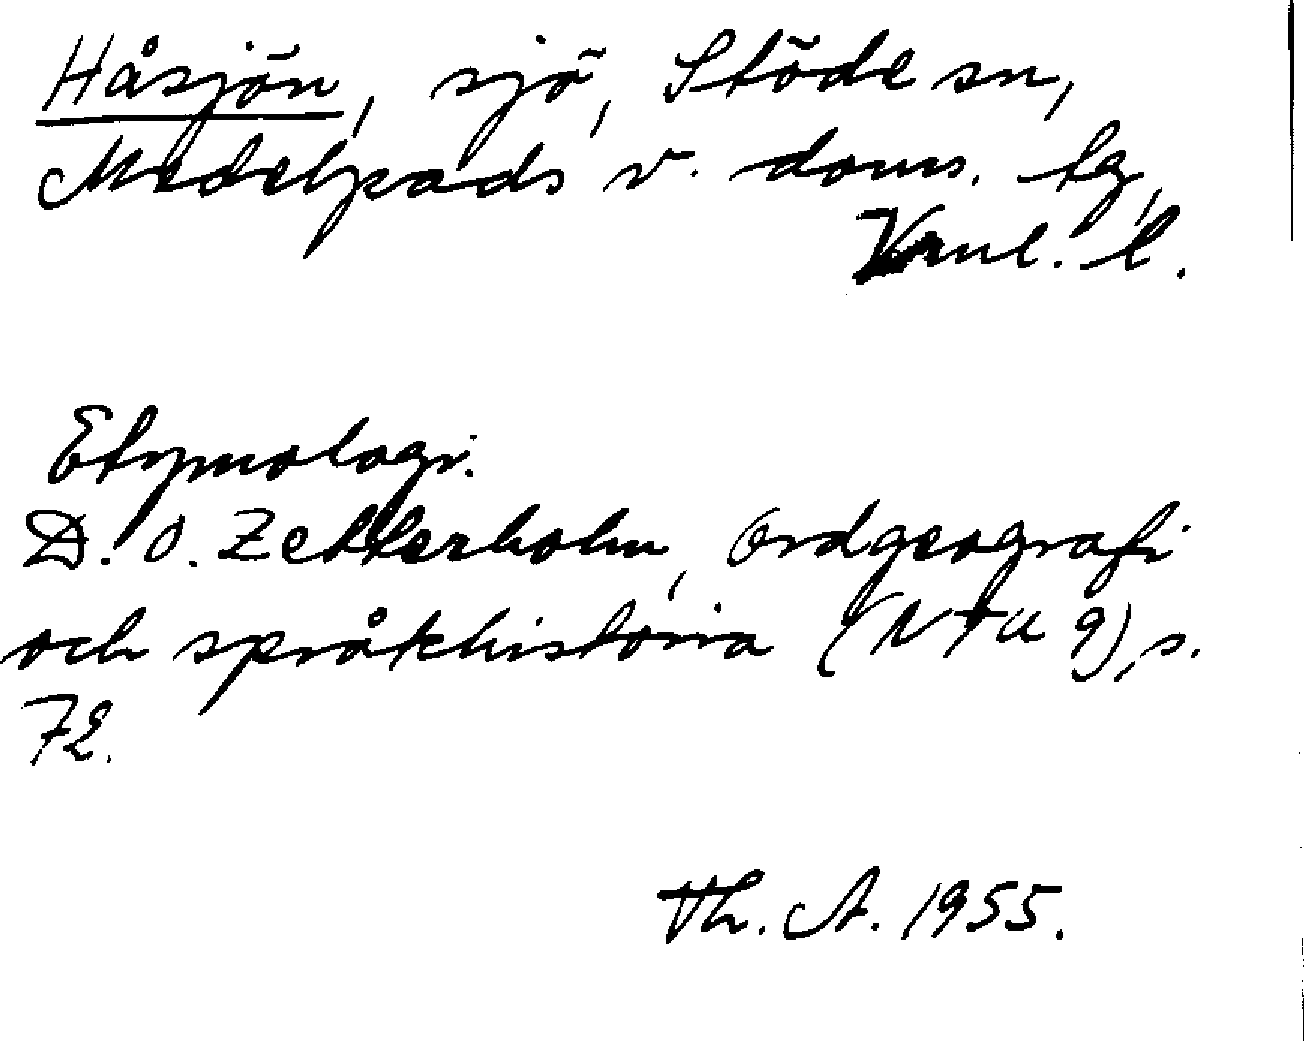 Håsjön, sjö, Stöde sn,
Medelpads v. doms. tg,
Vnl. l.
Etymologi.
D. O. Zetterholm, Ordgeografi
och språkhistoria (NTU 9), s.
72.
Th. A. 1955.